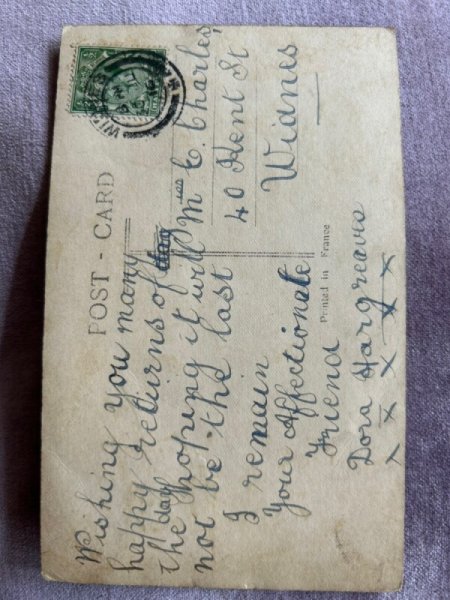 POST - CARD
Wishing you many
happy returns of
the day hoping it will
not be the last
I remain
Your Affectionate
Friend
Dora Hargreaves
X X X X X
M C Charles
40 Kent St
Widnes
Printed in France
WIDNES